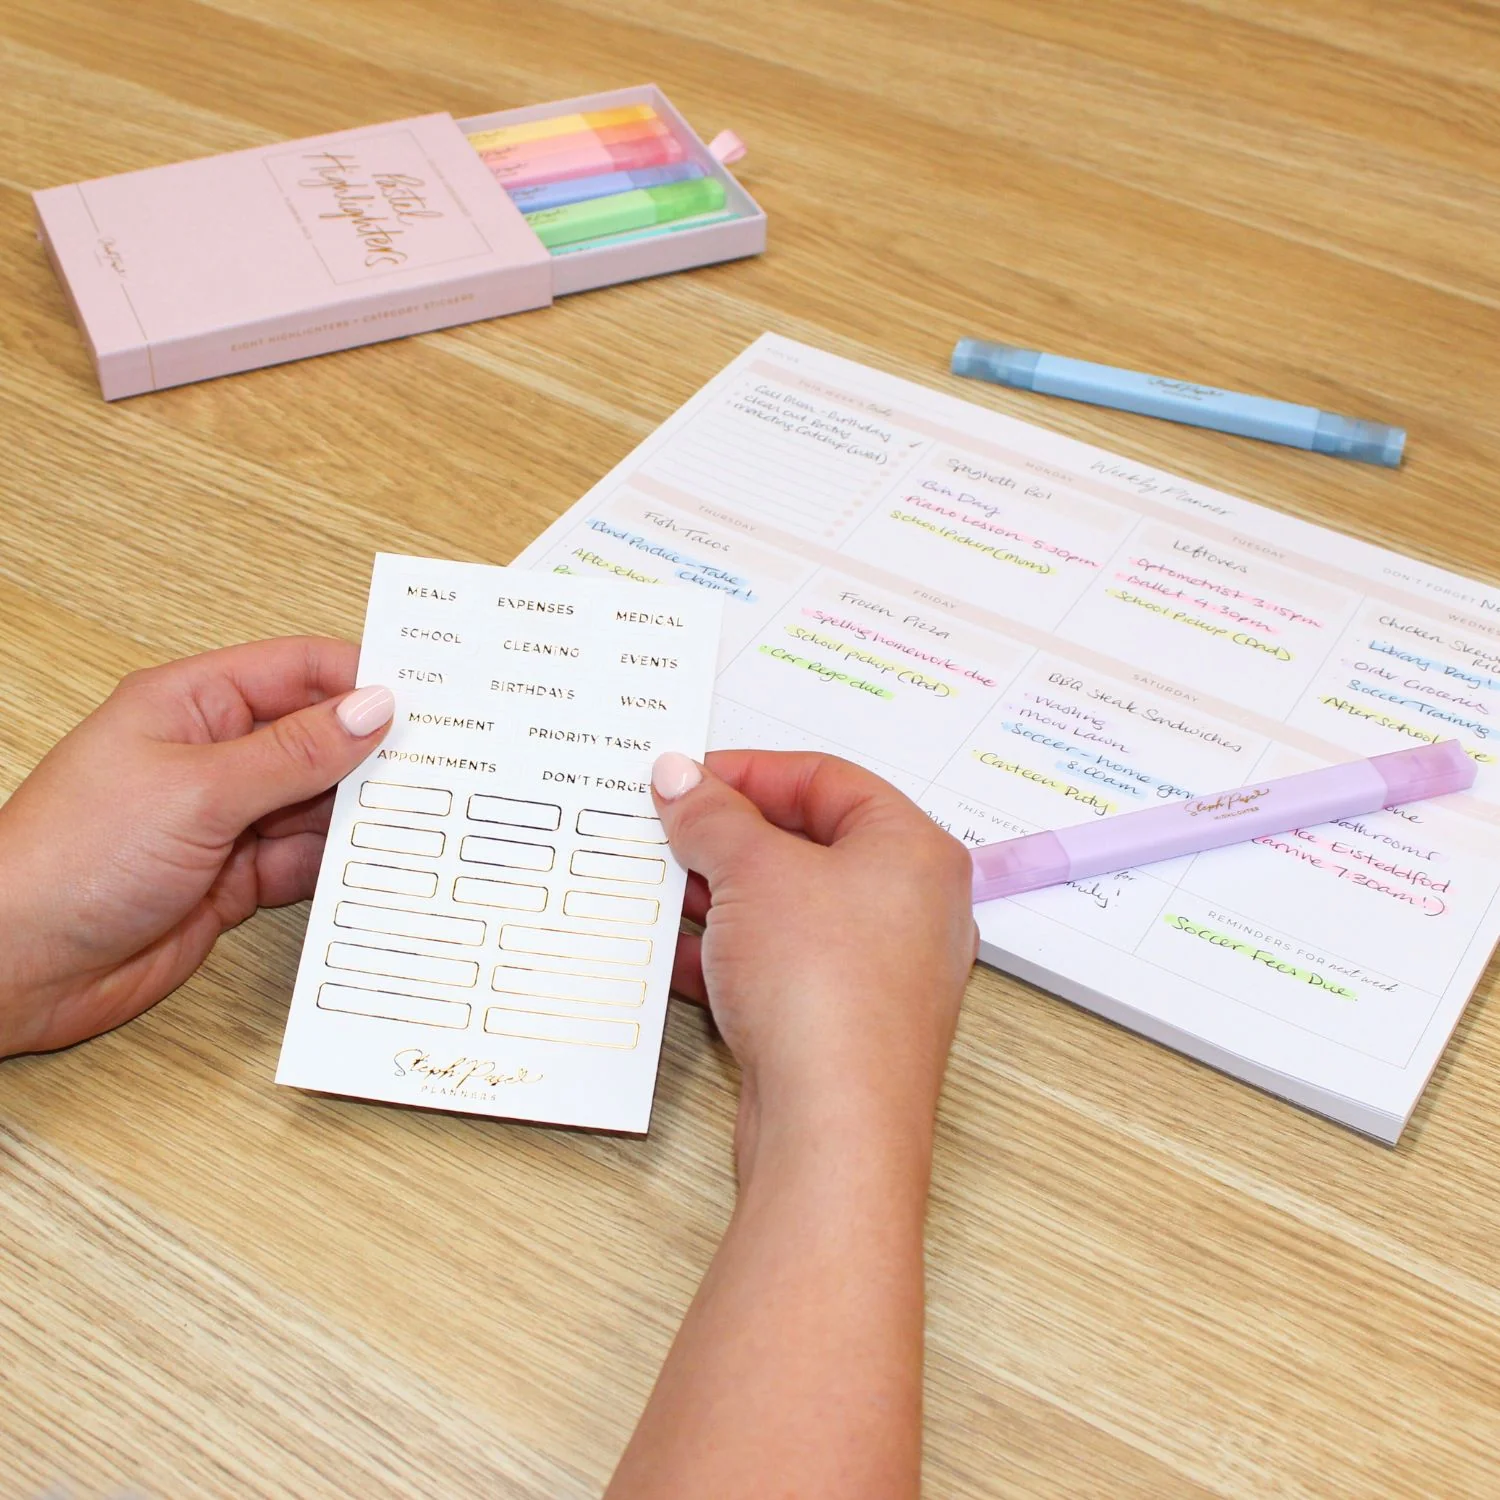 Pastel
Highlighters
EIGHT HIGHLIGHTERS + CATEGORY STICKERS
FOCUS
THIS WEEK'S
Call Mum - Birthday
clean out Pantry
marketing Catchup (wed)
Weekly Planner
MONDAY
Spaghetti Bol
Bin Day
Piano Lesson 5.30pm
School Pickup (Mum)
TUESDAY
Leftovers
Optometrist 3.15pm
Ballet 4.30pm
School Pickup (Dad)
DON'T FORGET
Chicken Skew
Library Day!
Order Groceries
Soccer Training
After School
THURSDAY
Fish Tacos
Band Practice - Take
Clarinet!
After School
FRIDAY
Frozen Pizza
Spelling homework due
School pickup (Dad)
Car Rego due
SATURDAY
BBQ Steak Sandwiches
Washing
Mow Lawn
Soccer - home gam
8.00am
Canteen Duty
athrooms
Eisteddfod
(arrive 7.30am!)
THIS WEEK
for
REMINDERS FOR next week
Soccer Fees Due.
Steph Pase
HIGHLIGHTER
MEALS EXPENSES MEDICAL
SCHOOL CLEANING EVENTS
STUDY BIRTHDAYS WORK
MOVEMENT PRIORITY TASKS
APPOINTMENTS DON'T FORGET
Steph Pase
PLANNERS